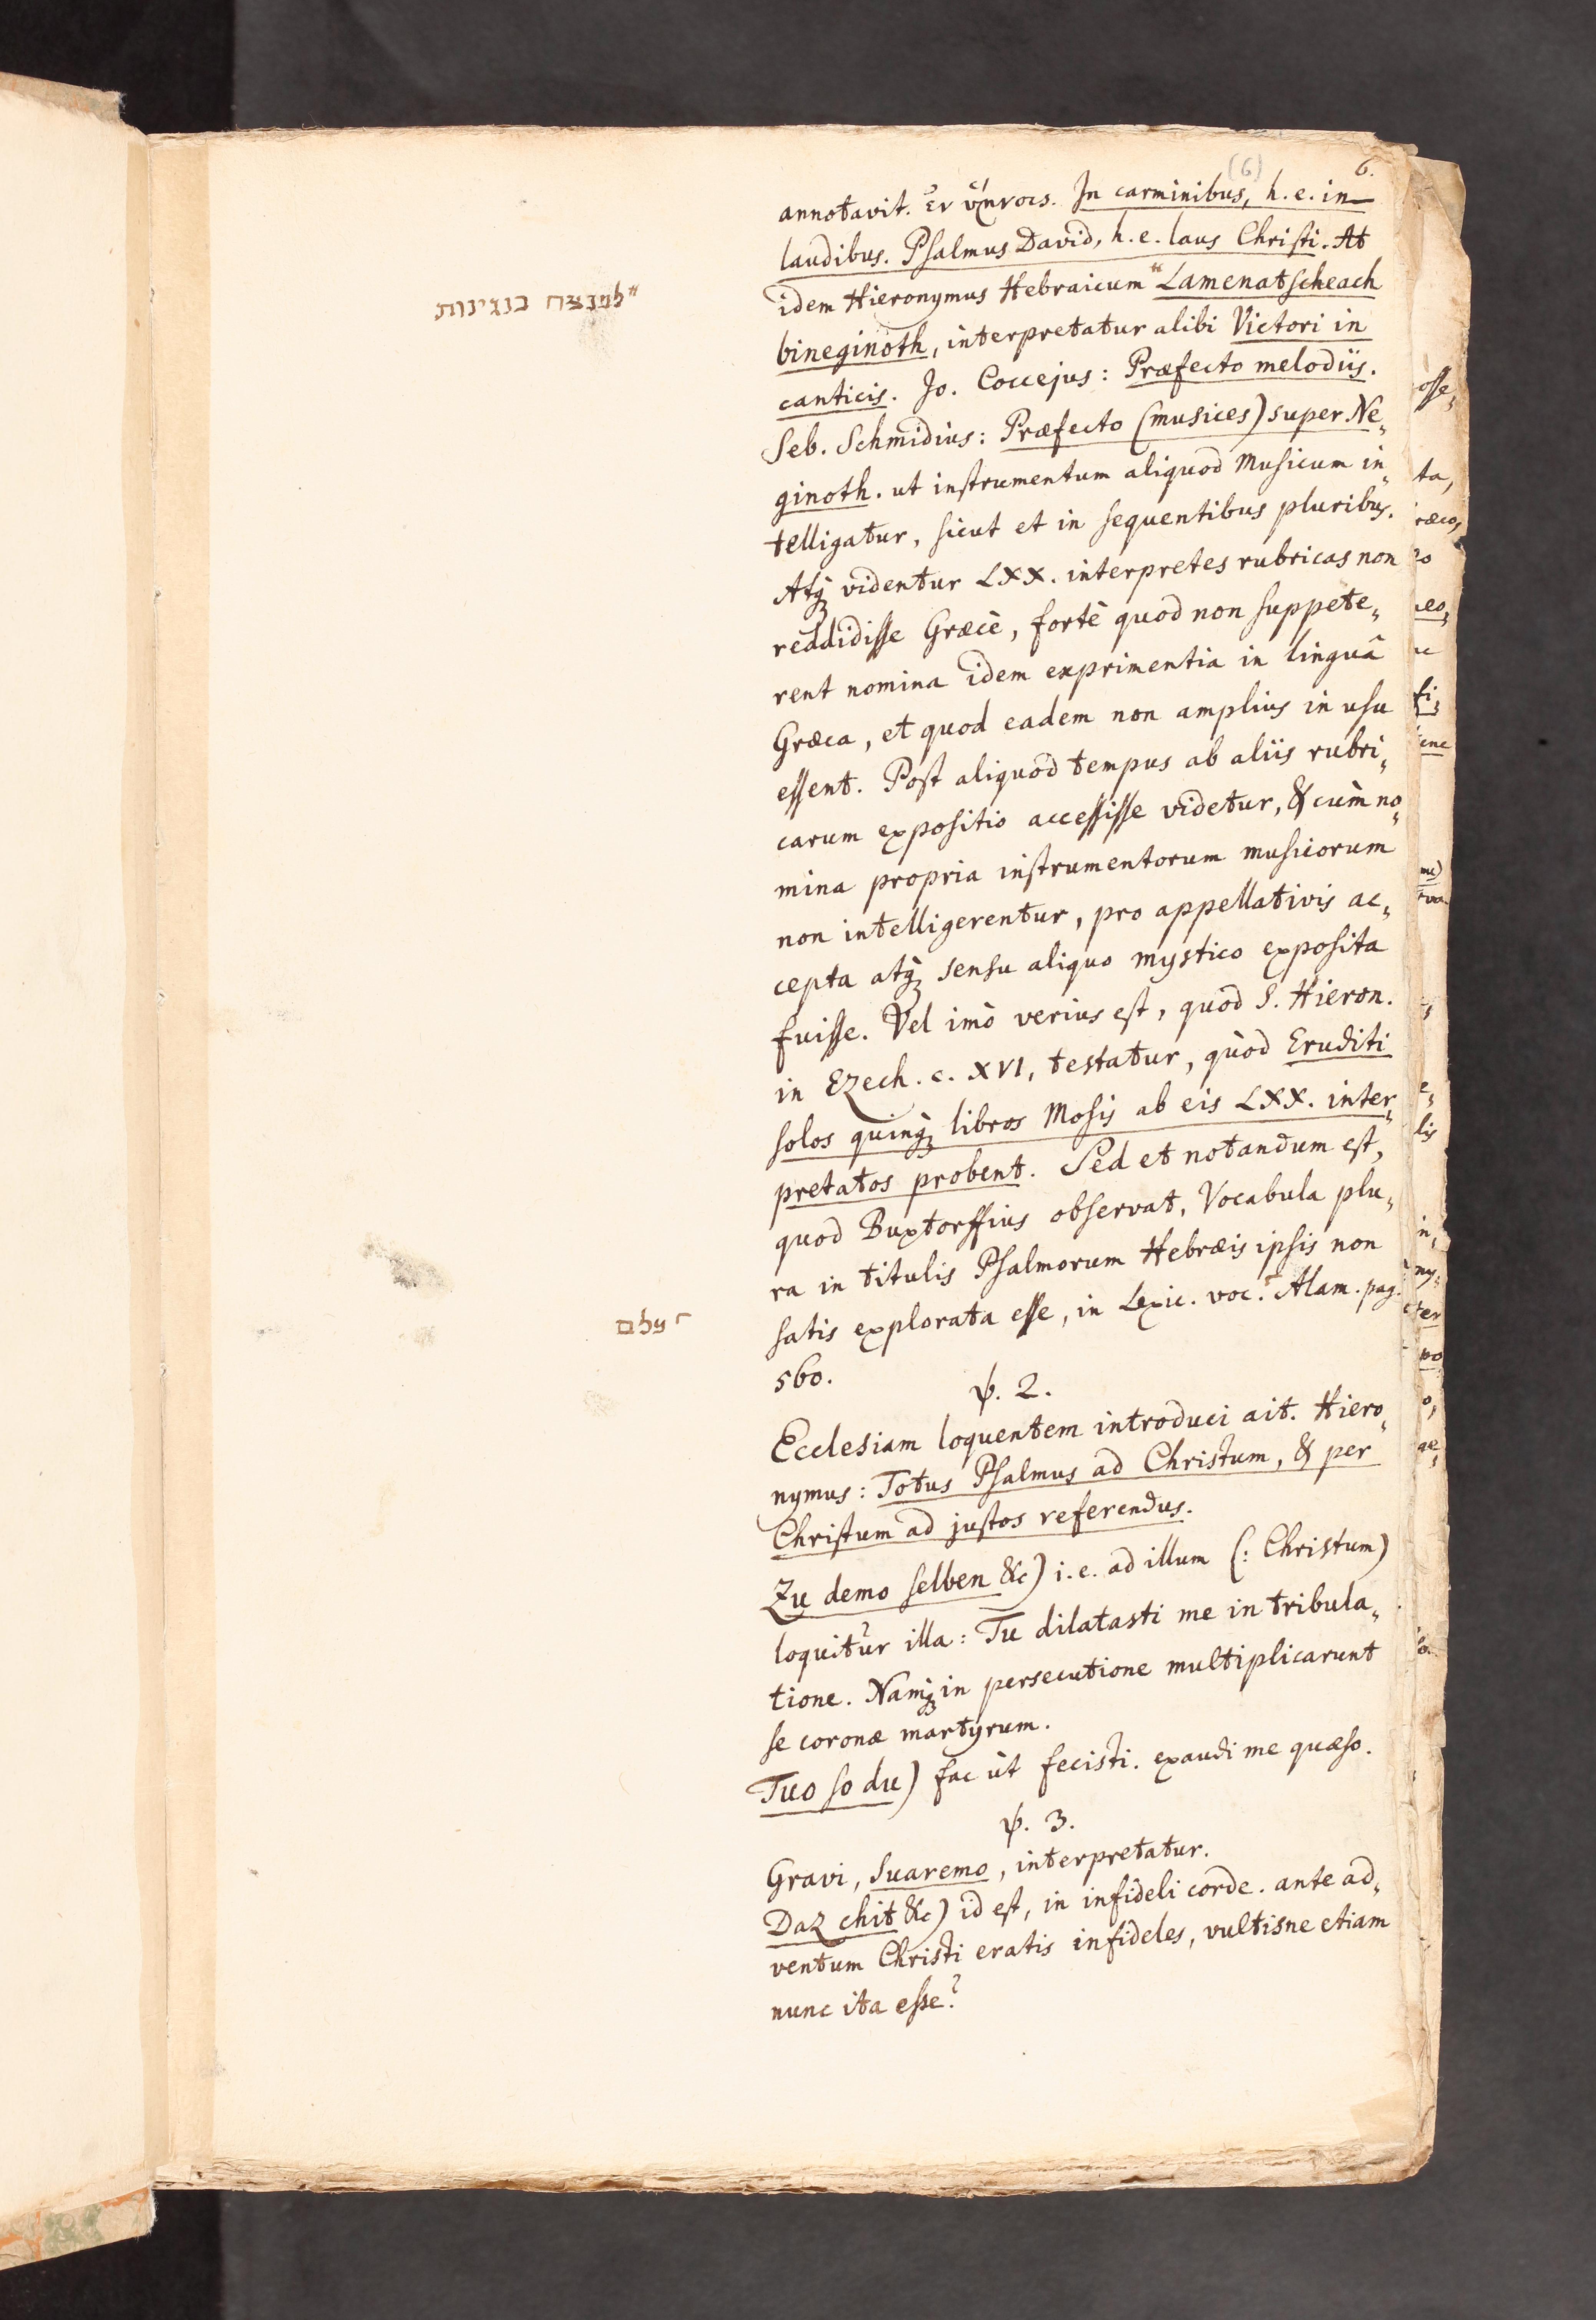 (6) 6.
annotavit. Ἐν ὕμνοις. In carminibus, h. e. in
laudibus. Psalmus David, h. e. laus Christi. At
idem Hieronymus Hebraicum " Lamenatscheach
bineginoth, interpretatur alibi Victori in
canticis. Jo. Coccejus: Præfecto melodiis.
Seb. Schmidius: Præfecto (musices) super Ne„
ginoth. ut instrumentum aliquod Musicum in„
telligatur, sicut et in sequentibus pluribus.
Atq; videntur LXX. interpretes rubricas non
reddidisse Græcè, fortè quod non suppete„
rent nomina idem exprimentia in linguâ
Græca, et quod eadem non amplius in usu
essent. Post aliquod tempus ab aliis rubri„
carum expositio accessisse videtur, & cùm no„
mina propria instrumentorum musicorum
non intelligerentur, pro appellativis ac„
cepta atq; sensu aliquo mystico exposita
fuisse. Vel imò verius est, quod S. Hieron.
in Ezech. c. XVI, testatur, quòd Eruditi
solos quinq; libros Mosis ab eis LXX. inter„
pretatos probent. Sed et notandum est,
quod Buxtorffius observat, Vocabula plu„
ra in titulis Psalmorum Hebræis ipsis non
satis explorata esse, in Lexic. voc. ⌜ Alam. pag.
560.
ψ. 2.
Ecclesiam loquentem introduci ait. Hiero„
nymus: Totus Psalmus ad Christum, & per
Christum ad justos referendus.
Zu demo selben &c) i. e. ad illum (: Christum)
loquitur illa: Tu dilatasti me in tribula„
tione. Namq; in persecutione multiplicarunt
se coronæ martyrum.
Tuo so du) fac ùt fecisti. exaudi me quæso.
ψ. 3.
Gravi, suaremo, interpretatur.
Daz chit &c) id est, in infideli corde. ante ad„
ventum Christi eratis infideles, vultisne etiam
nunc ita esse?
" למנצח בנגינות
⌜ עלם